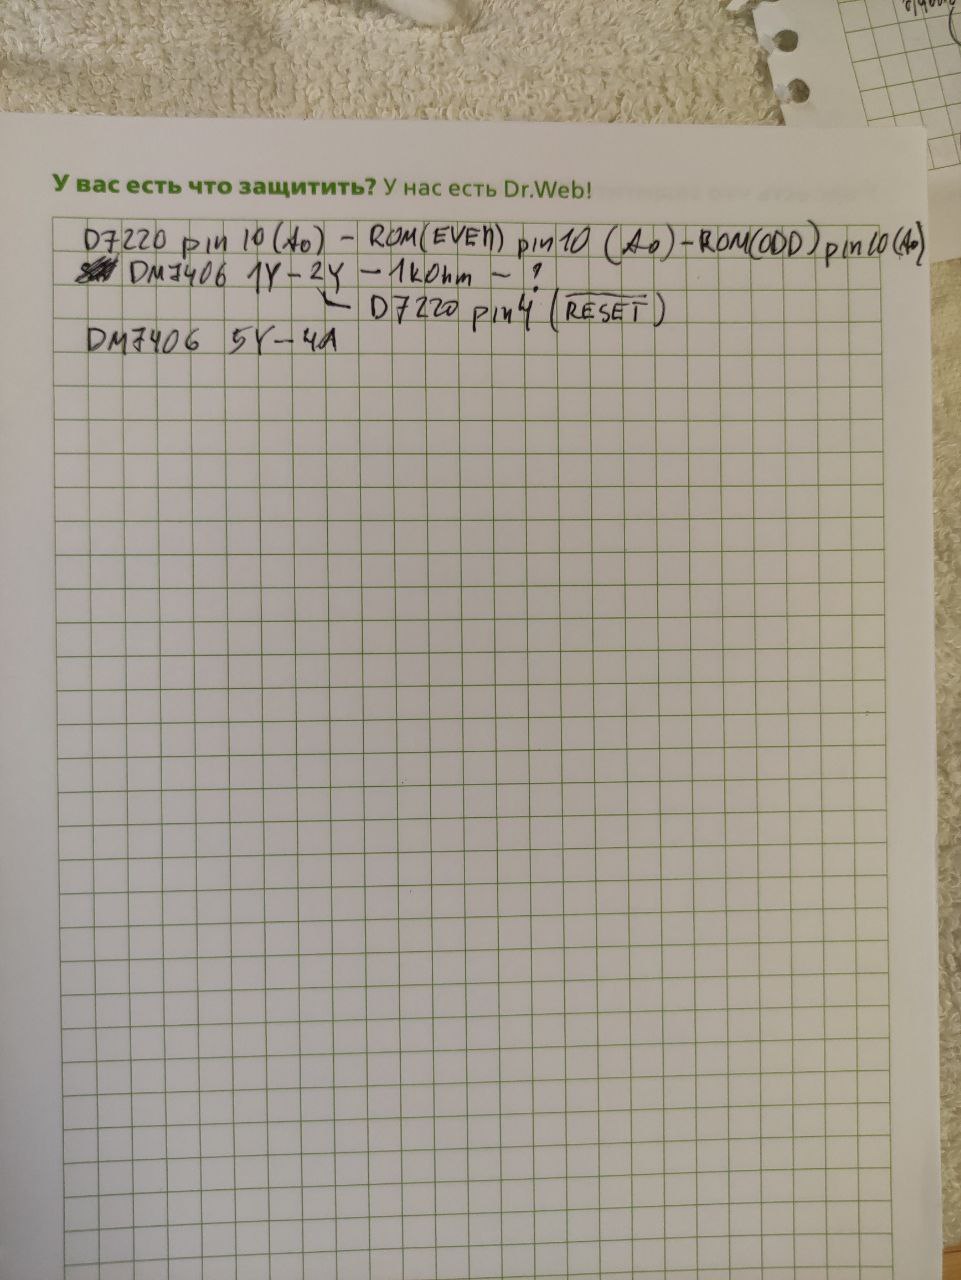 У вас есть что защитить? У нас есть Dr.Web!
D7220 pin 10 (A0) - ROM(EVEN) pin 10 (A0) - ROM(ODD) pin 10 (A0)
DM7406 1Y - 2Y - 1kOhm - ?
D7220 pin 4 (RESET)
DM7406 5Y - 4A